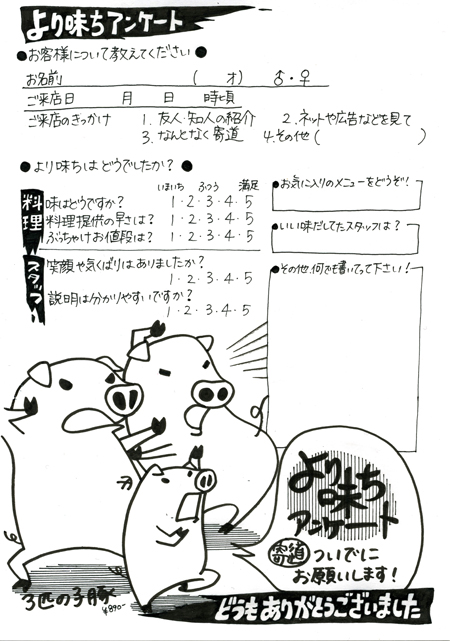 より味ちアンケート
●お客様について教えてください●
お名前 （ 才） ♂・♀
ご来店日 月 日 時頃
ご来店のきっかけ 1. 友人・知人の紹介 2. ネットや広告などを見て
3. なんとなく寄道 4. その他（ ）
●より味ちはどうでしたか？●
いまいち ふつう 満足
料理
味はどうですか？ 1・2・3・4・5
料理提供の早さは？ 1・2・3・4・5
ぶっちゃけお値段は？ 1・2・3・4・5
スタッフ
笑顔や気くばりはありましたか？
1・2・3・4・5
説明は分かりやすいですか？
1・2・3・4・5
●お気に入りのメニューをどうぞ！
●いい味だしてたスタッフは？
●その他、何でも書いてって下さい！
より
味ち
アンケート
寄道 ついでに
お願いします！
3匹の子豚
¥890-
どうもありがとうございました